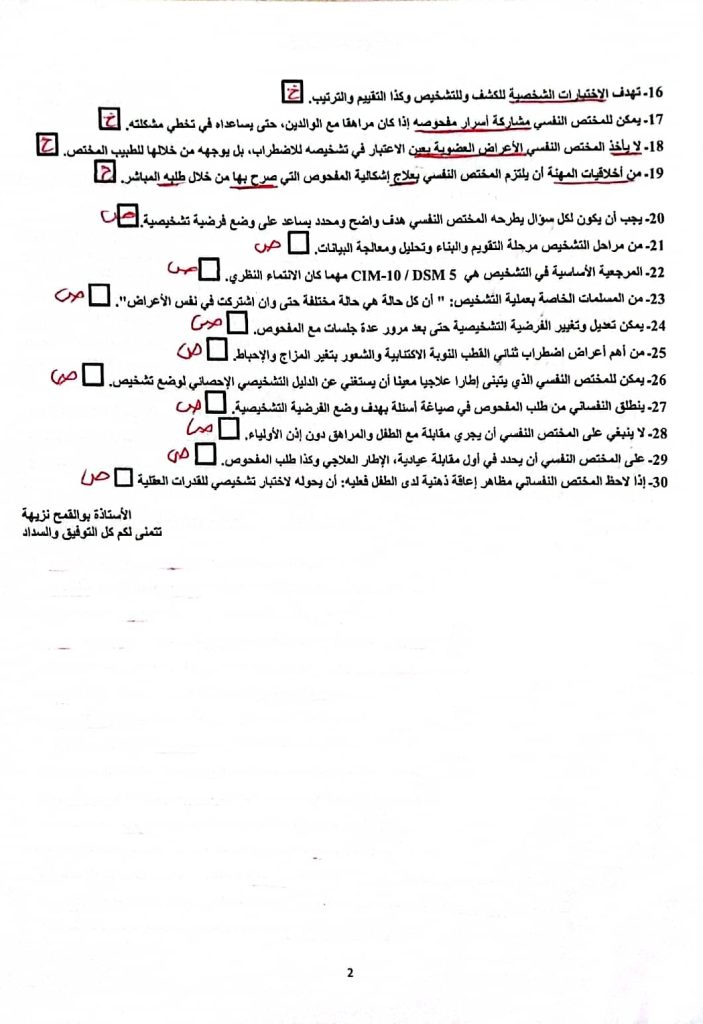 16- تهدف الاختبارات الشخصية للكشف وللتشخيص وكذا التقييم والترتيب. خ
17- يمكن للمختص النفسي مشاركة أسرار مفحوصه إذا كان مراهقا مع الوالدين، حتى يساعداه في تخطي مشكلته. خ
18- لا يأخذ المختص النفسي الأعراض العضوية بعين الاعتبار في تشخيصه للاضطراب، بل يوجهه من خلالها للطبيب المختص. خ
19- من أخلاقيات المهنة أن يلتزم المختص النفسي بعلاج إشكالية المفحوص التي صرح بها من خلال طلبه المباشر. خ
20- يجب أن يكون لكل سؤال يطرحه المختص النفسي هدف واضح ومحدد يساعد على وضع فرضية تشخيصية. ص
21- من مراحل التشخيص مرحلة التقويم والبناء وتحليل ومعالجة البيانات. ص
22- المرجعية الأساسية في التشخيص هي CIM-10 / DSM 5 مهما كان الانتماء النظري. ص
23- من المسلمات الخاصة بعملية التشخيص: " أن كل حالة هي حالة مختلفة حتى وان اشتركت في نفس الأعراض". ص
24- يمكن تعديل وتغيير الفرضية التشخيصية حتى بعد مرور عدة جلسات مع المفحوص. ص
25- من أهم أعراض اضطراب ثنائي القطب النوبة الاكتئابية والشعور بتغير المزاج والإحباط. ص
26- يمكن للمختص النفسي الذي يتبنى إطارا علاجيا معينا أن يستغني عن الدليل التشخيصي الإحصائي لوضع تشخيص. ص
27- ينطلق النفساني من طلب المفحوص في صياغة أسئلة بهدف وضع الفرضية التشخيصية. ص
28- لا ينبغي على المختص النفسي أن يجري مقابلة مع الطفل والمراهق دون إذن الأولياء. ص
29- على المختص النفسي أن يحدد في أول مقابلة عيادية، الإطار العلاجي وكذا طلب المفحوص. ص
30- إذا لاحظ المختص النفساني مظاهر إعاقة ذهنية لدى الطفل فعليه: أن يحوله لاختبار تشخيصي للقدرات العقلية ص
الأستاذة بوالقمح نزيهة
تتمنى لكم كل التوفيق والسداد
2